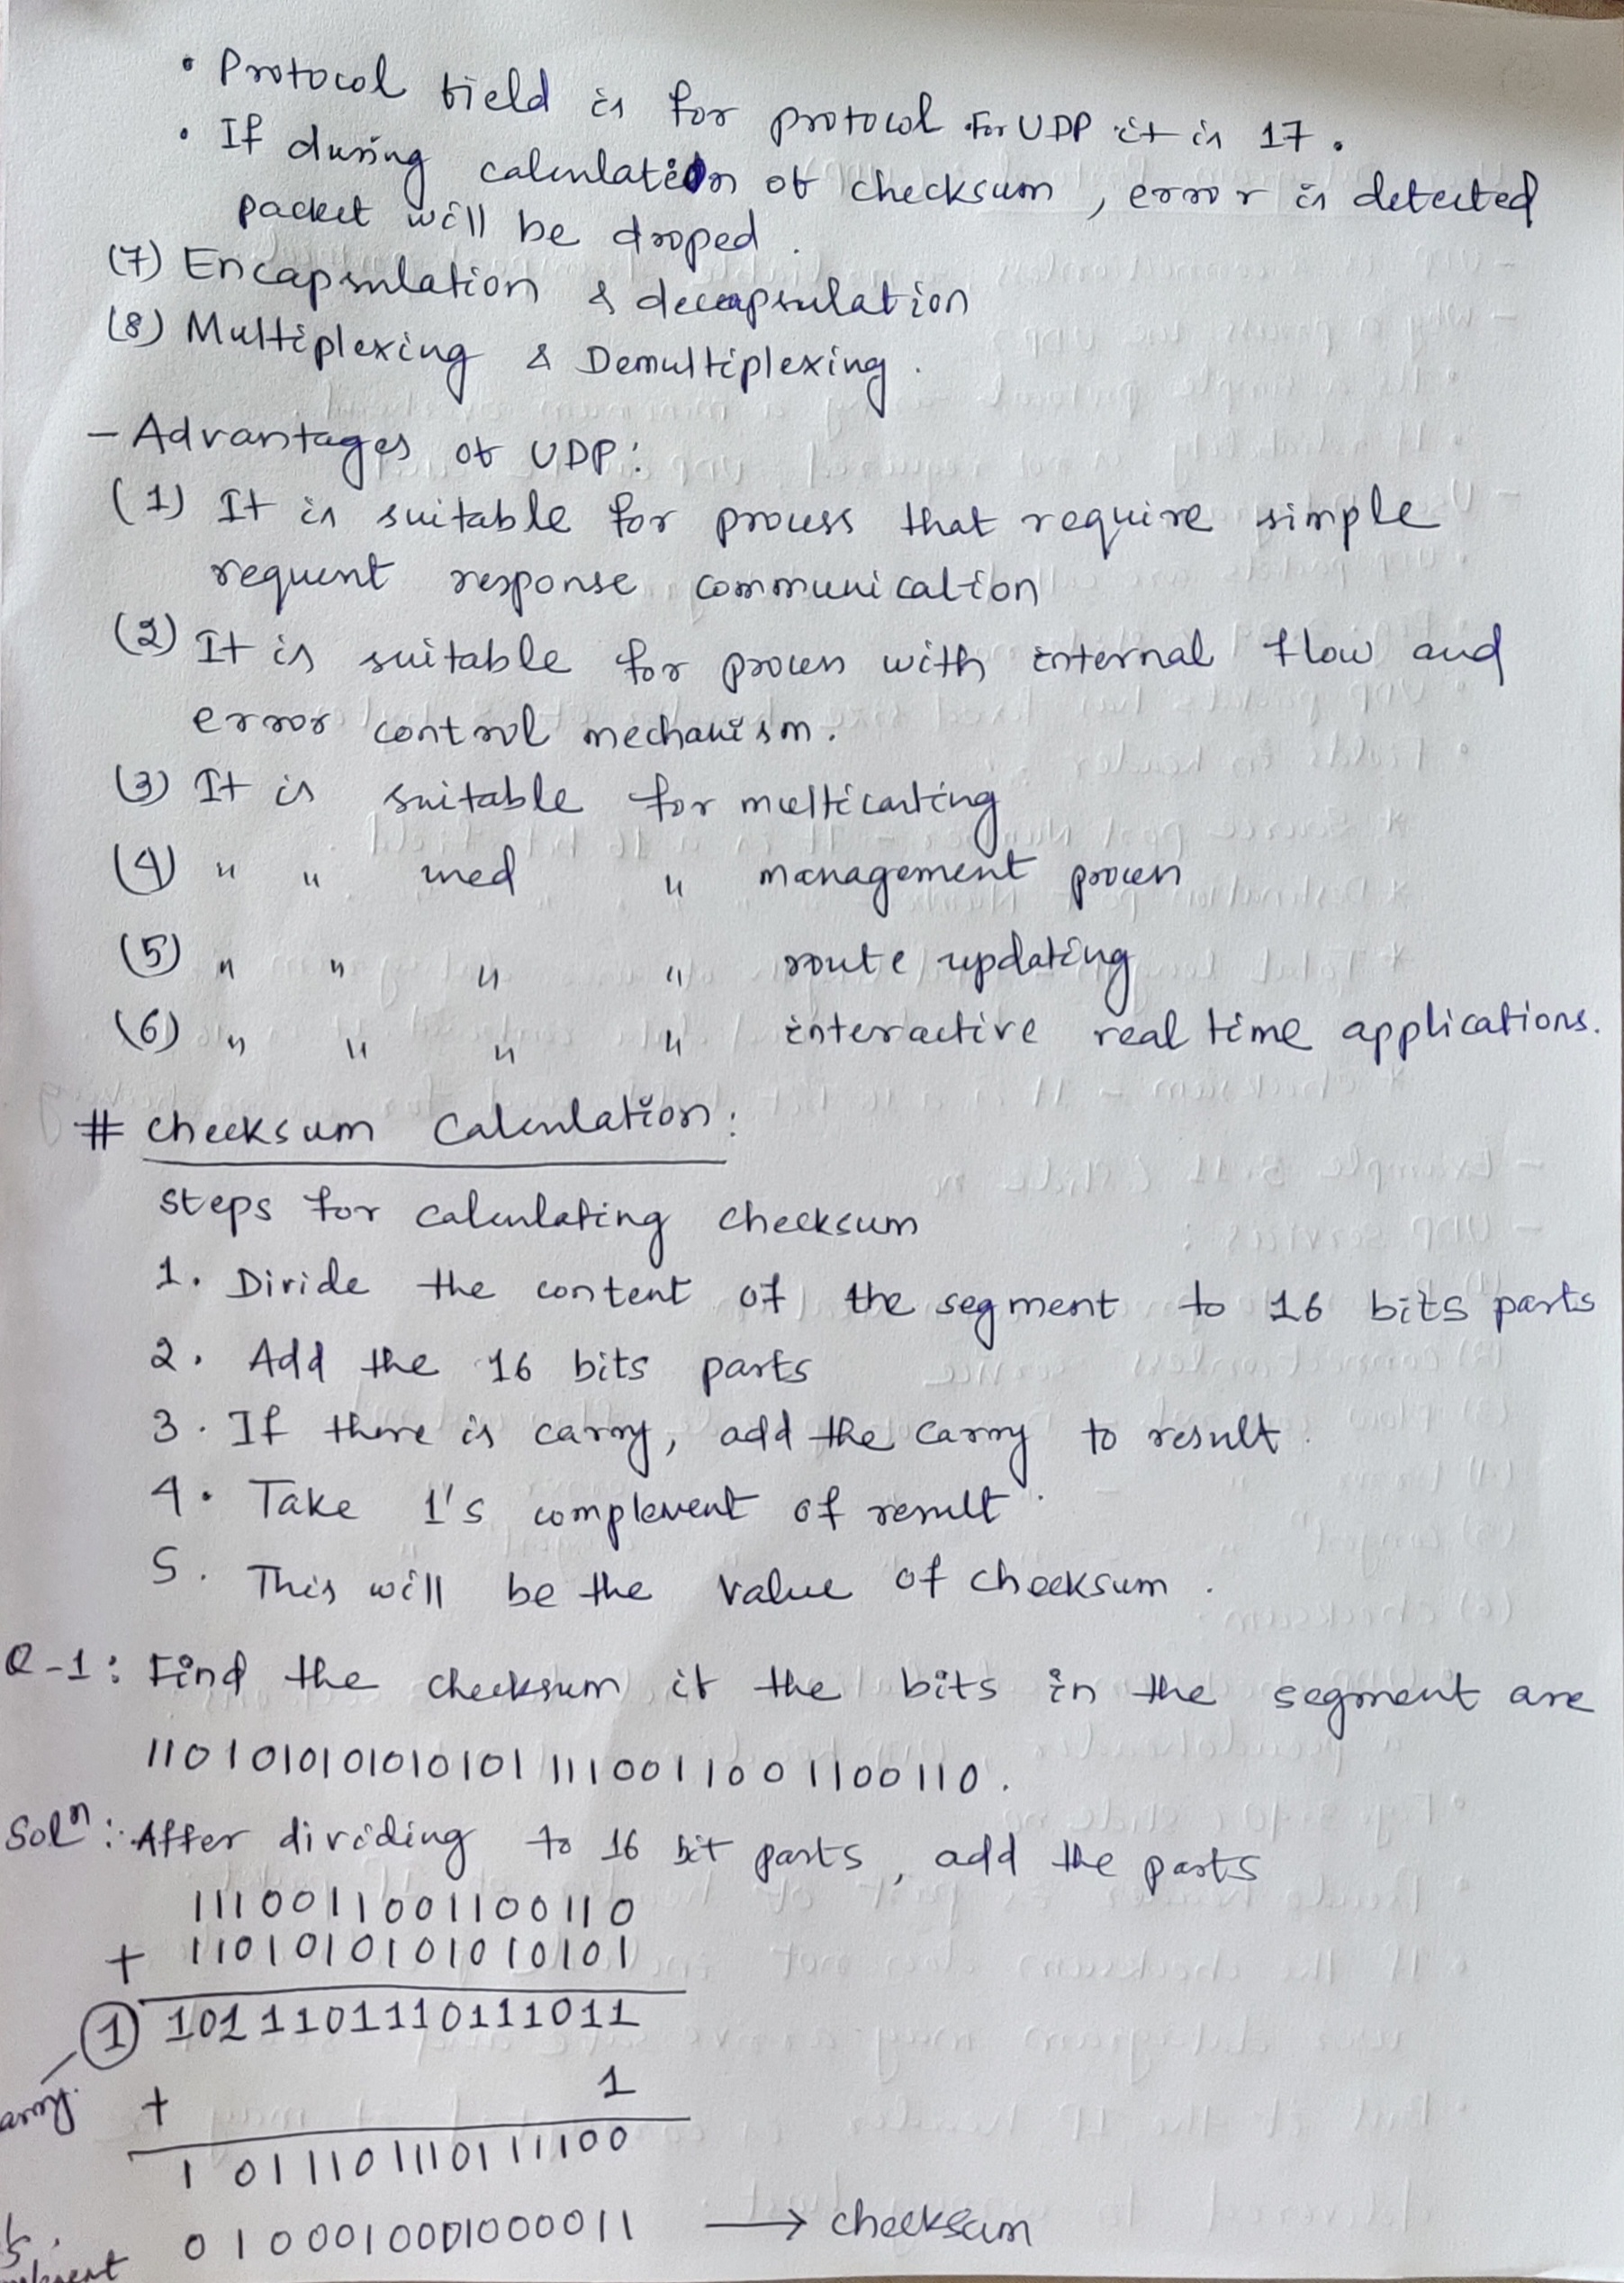 • Protocol field is for protocol. For UDP it is 17.
• If during calculation of checksum, error is detected
packet will be droped.
(7) Encapsulation & decapsulation
(8) Multiplexing & Demultiplexing.
- Advantages of UDP:
(1) It is suitable for process that require simple
request response communication
(2) It is suitable for process with internal flow and
error control mechanism.
(3) It is suitable for multicasting
(4) " " used " management process
(5) " " " " route updating
(6) " " " " interactive real time applications.
# Checksum Calculation:
Steps for calculating checksum
1. Divide the content of the segment to 16 bits parts
2. Add the 16 bits parts
3. If there is carry, add the carry to result.
4. Take 1's complement of result.
5. This will be the value of checksum.
Q-1: Find the checksum if the bits in the segment are
11010101010101011110011001100110.
Solⁿ: After dividing to 16 bit parts, add the parts
1110011001100110
+ 1101010101010101
(1) 1011101110111011
+ 1
1011101110111100
0100010001000011 → checksum